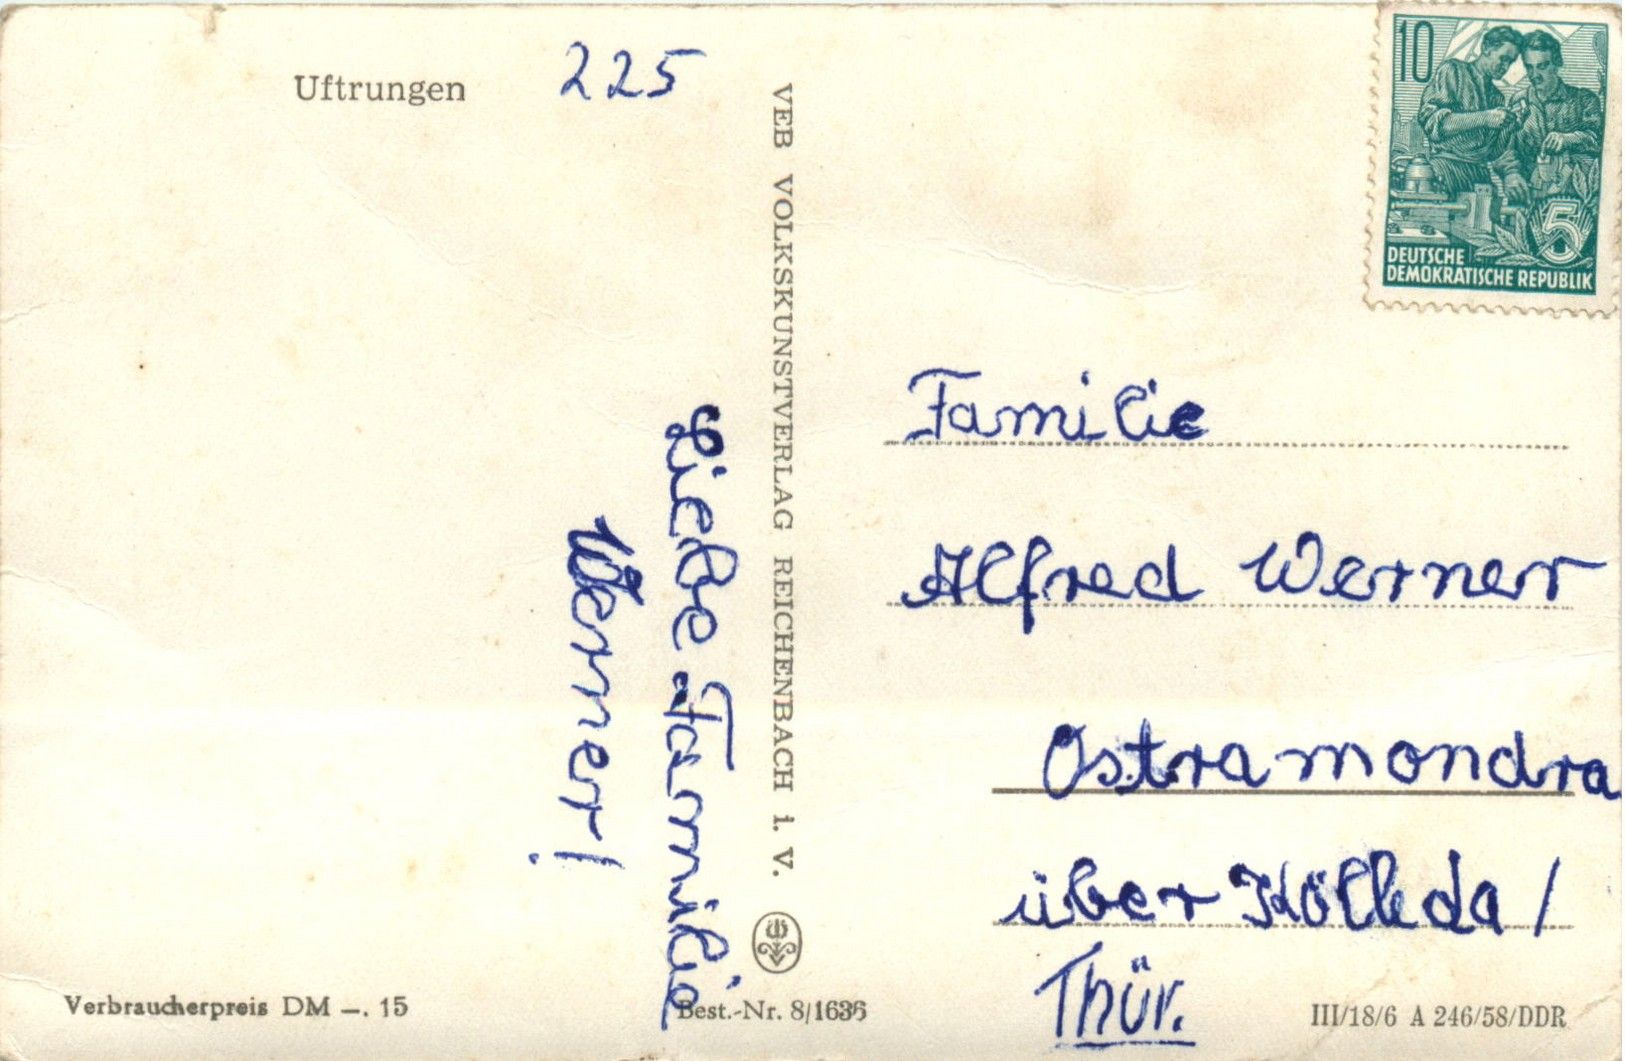 Uftrungen
225
Liebe Familie
Werner!
VEB VOLKSKUNSTVERLAG REICHENBACH i. V.
10
5
DEUTSCHE
DEMOKRATISCHE REPUBLIK
Familie
Alfred Werner
Ostramondra
über Kölleda /
Thür.
Verbraucherpreis DM —. 15
Best.-Nr. 8/1636
III/18/6 A 246/58/DDR